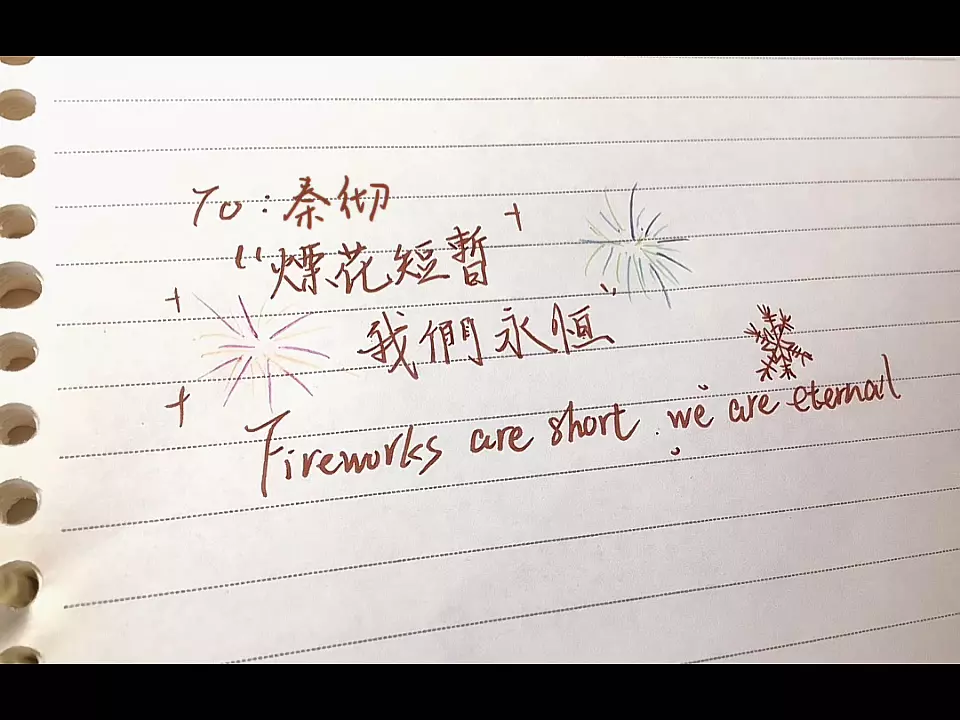 To:秦彻
“煙花短暫
我們永恒”
Fireworks are short. we are eternal